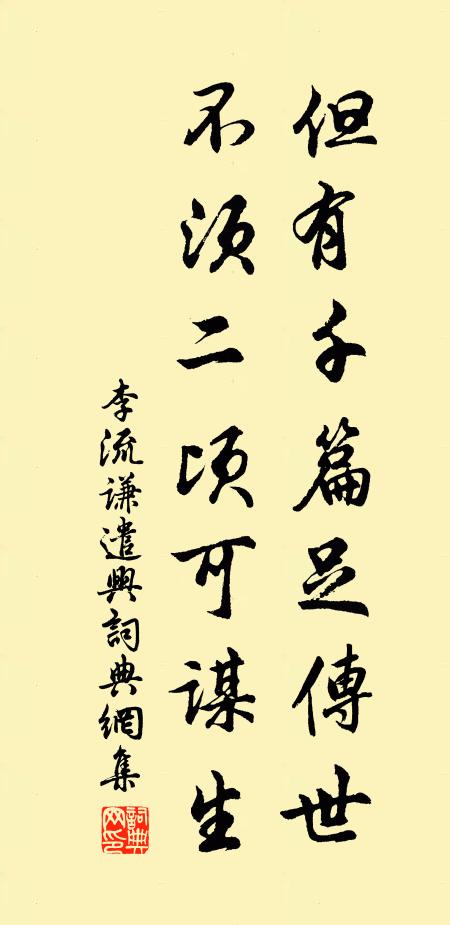 但有千篇足傳世
不須二頃可謀生
李流謙遣興詞典網集
詞典網印